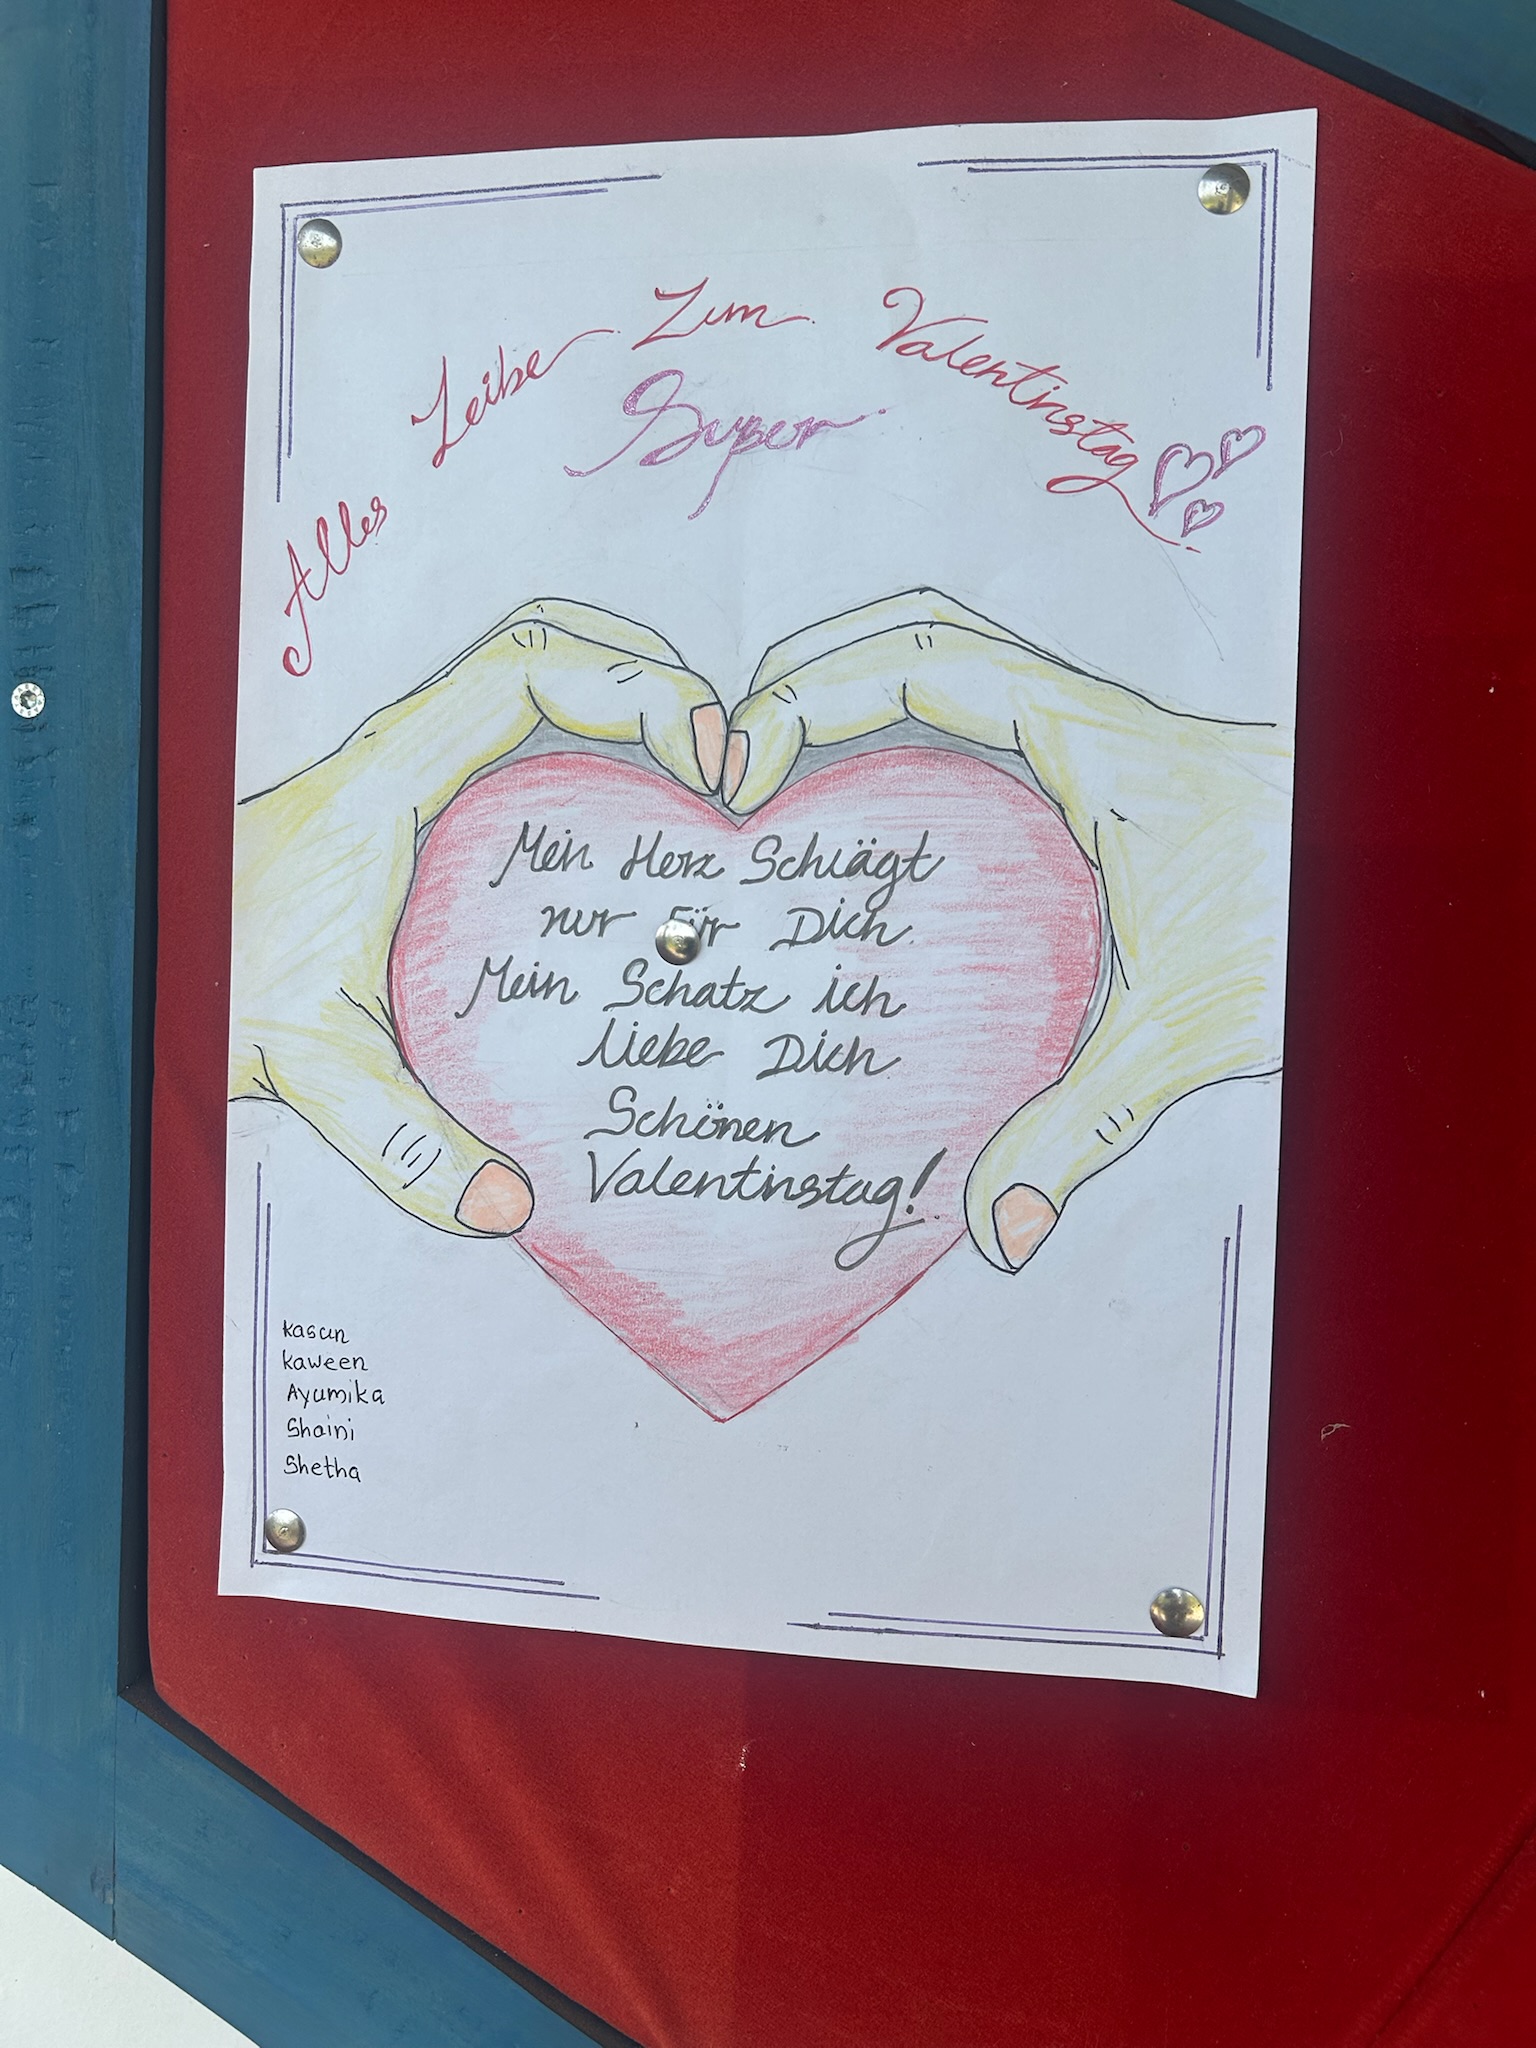 Alles Leibe Zum Valentinstag
Super
Mein Herz Schlägt
nur Für Dich.
Mein Schatz ich
liebe Dich
Schönen
Valentinstag!
Kasun
Kaween
Ayumika
Shaini
Shetha